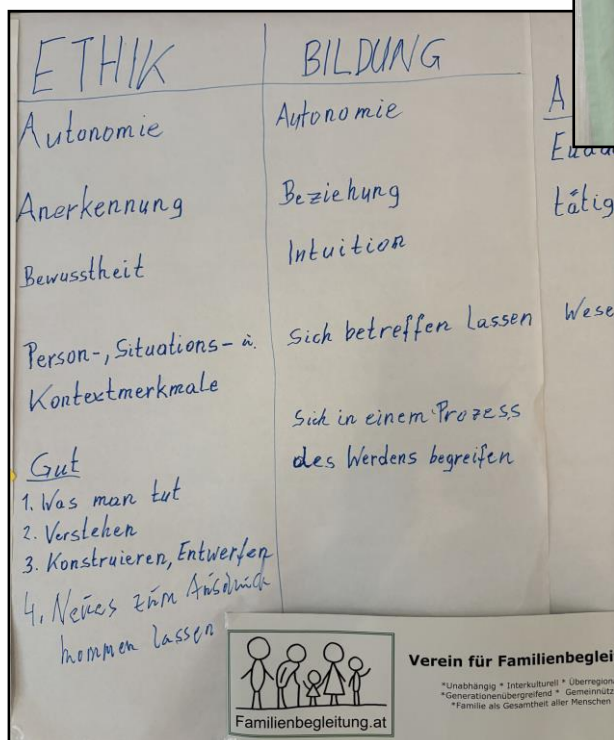 ETHIK
Autonomie
Anerkennung
Bewusstheit
Person-, Situations- u.
Kontextmerkmale
Gut
1. Was man tut
2. Verstehen
3. Konstruieren, Entwerfen
4. Neues zum Ausdruck
kommen lassen
BILDUNG
Autonomie
Beziehung
Intuition
Sich betreffen lassen
Sich in einem Prozess
des Werdens begreifen
A
tätig
Wese
Familienbegleitung.at
Verein für Familienbeglei
*Unabhängig * Interkulturell * Überregion
*Generationenübergreifend * Gemeinnütz
*Familie als Gesamtheit aller Menschen